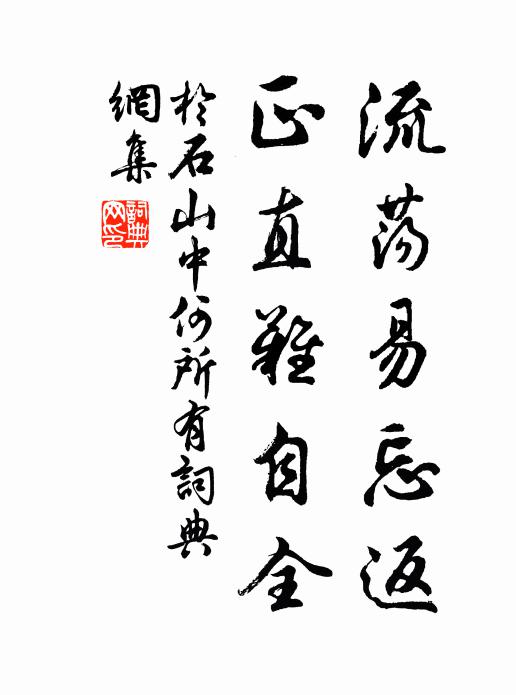 流荡易忘返
正直难自全
於石山中何所有詞典
網集
詞典网印